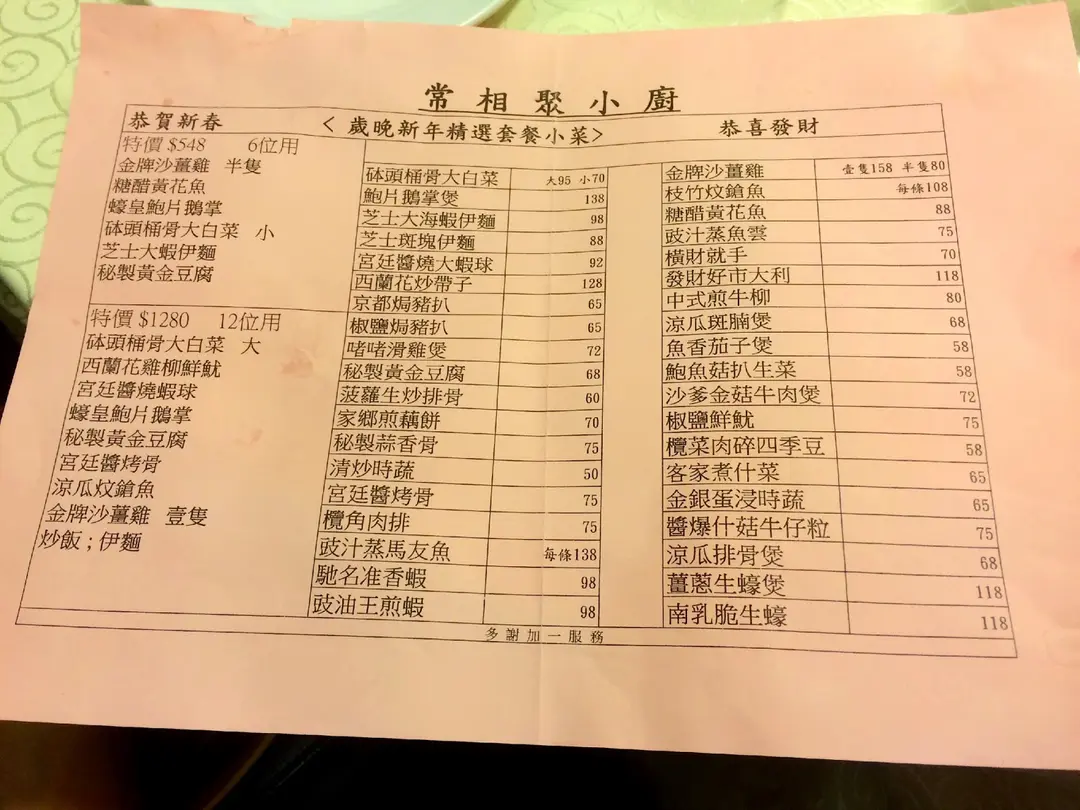 常相聚小廚
恭賀新春
< 歲晚新年精選套餐小菜>
恭喜發財
特價 $548 6位用
金牌沙薑雞 半隻
糖醋黃花魚
蠔皇鮑片鵝掌
砵頭桶骨大白菜 小
芝士大蝦伊麵
秘製黃金豆腐
特價 $1280 12位用
砵頭桶骨大白菜 大
西蘭花雞柳鮮魷
宮廷醬燒蝦球
蠔皇鮑片鵝掌
秘製黃金豆腐
宮廷醬烤骨
涼瓜炆鎗魚
金牌沙薑雞 壹隻
炒飯 ; 伊麵
砵頭桶骨大白菜 大95 小70
鮑片鵝掌煲 138
芝士大海蝦伊麵 98
芝士斑塊伊麵 88
宮廷醬燒大蝦球 92
西蘭花炒帶子 128
京都焗豬扒 65
椒鹽焗豬扒 65
啫啫滑雞煲 72
秘製黃金豆腐 68
菠蘿生炒排骨 60
家鄉煎藕餅 70
秘製蒜香骨 75
清炒時蔬 50
宮廷醬烤骨 75
欖角肉排 75
豉汁蒸馬友魚 每條138
馳名准香蝦 98
豉油王煎蝦 98
金牌沙薑雞 壹隻158 半隻80
枝竹炆鎗魚 每條108
糖醋黃花魚 88
豉汁蒸魚雲 75
橫財就手 70
發財好市大利 118
中式煎牛柳 80
涼瓜斑腩煲 68
魚香茄子煲 58
鮑魚菇扒生菜 58
沙爹金菇牛肉煲 72
椒鹽鮮魷 75
欖菜肉碎四季豆 58
客家煮什菜 65
金銀蛋浸時蔬 65
醬爆什菇牛仔粒 75
涼瓜排骨煲 68
薑蔥生蠔煲 118
南乳脆生蠔 118
多謝加一服務